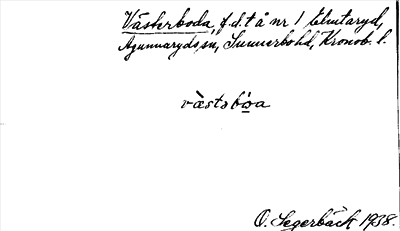 Västerboda, f.d.t å nr 1 Elmtaryd,
Agunnaryds sn, Sunnerbo hd, Kronob. l.
vä̀stsbo̱a
O. Segerbäck 1938.